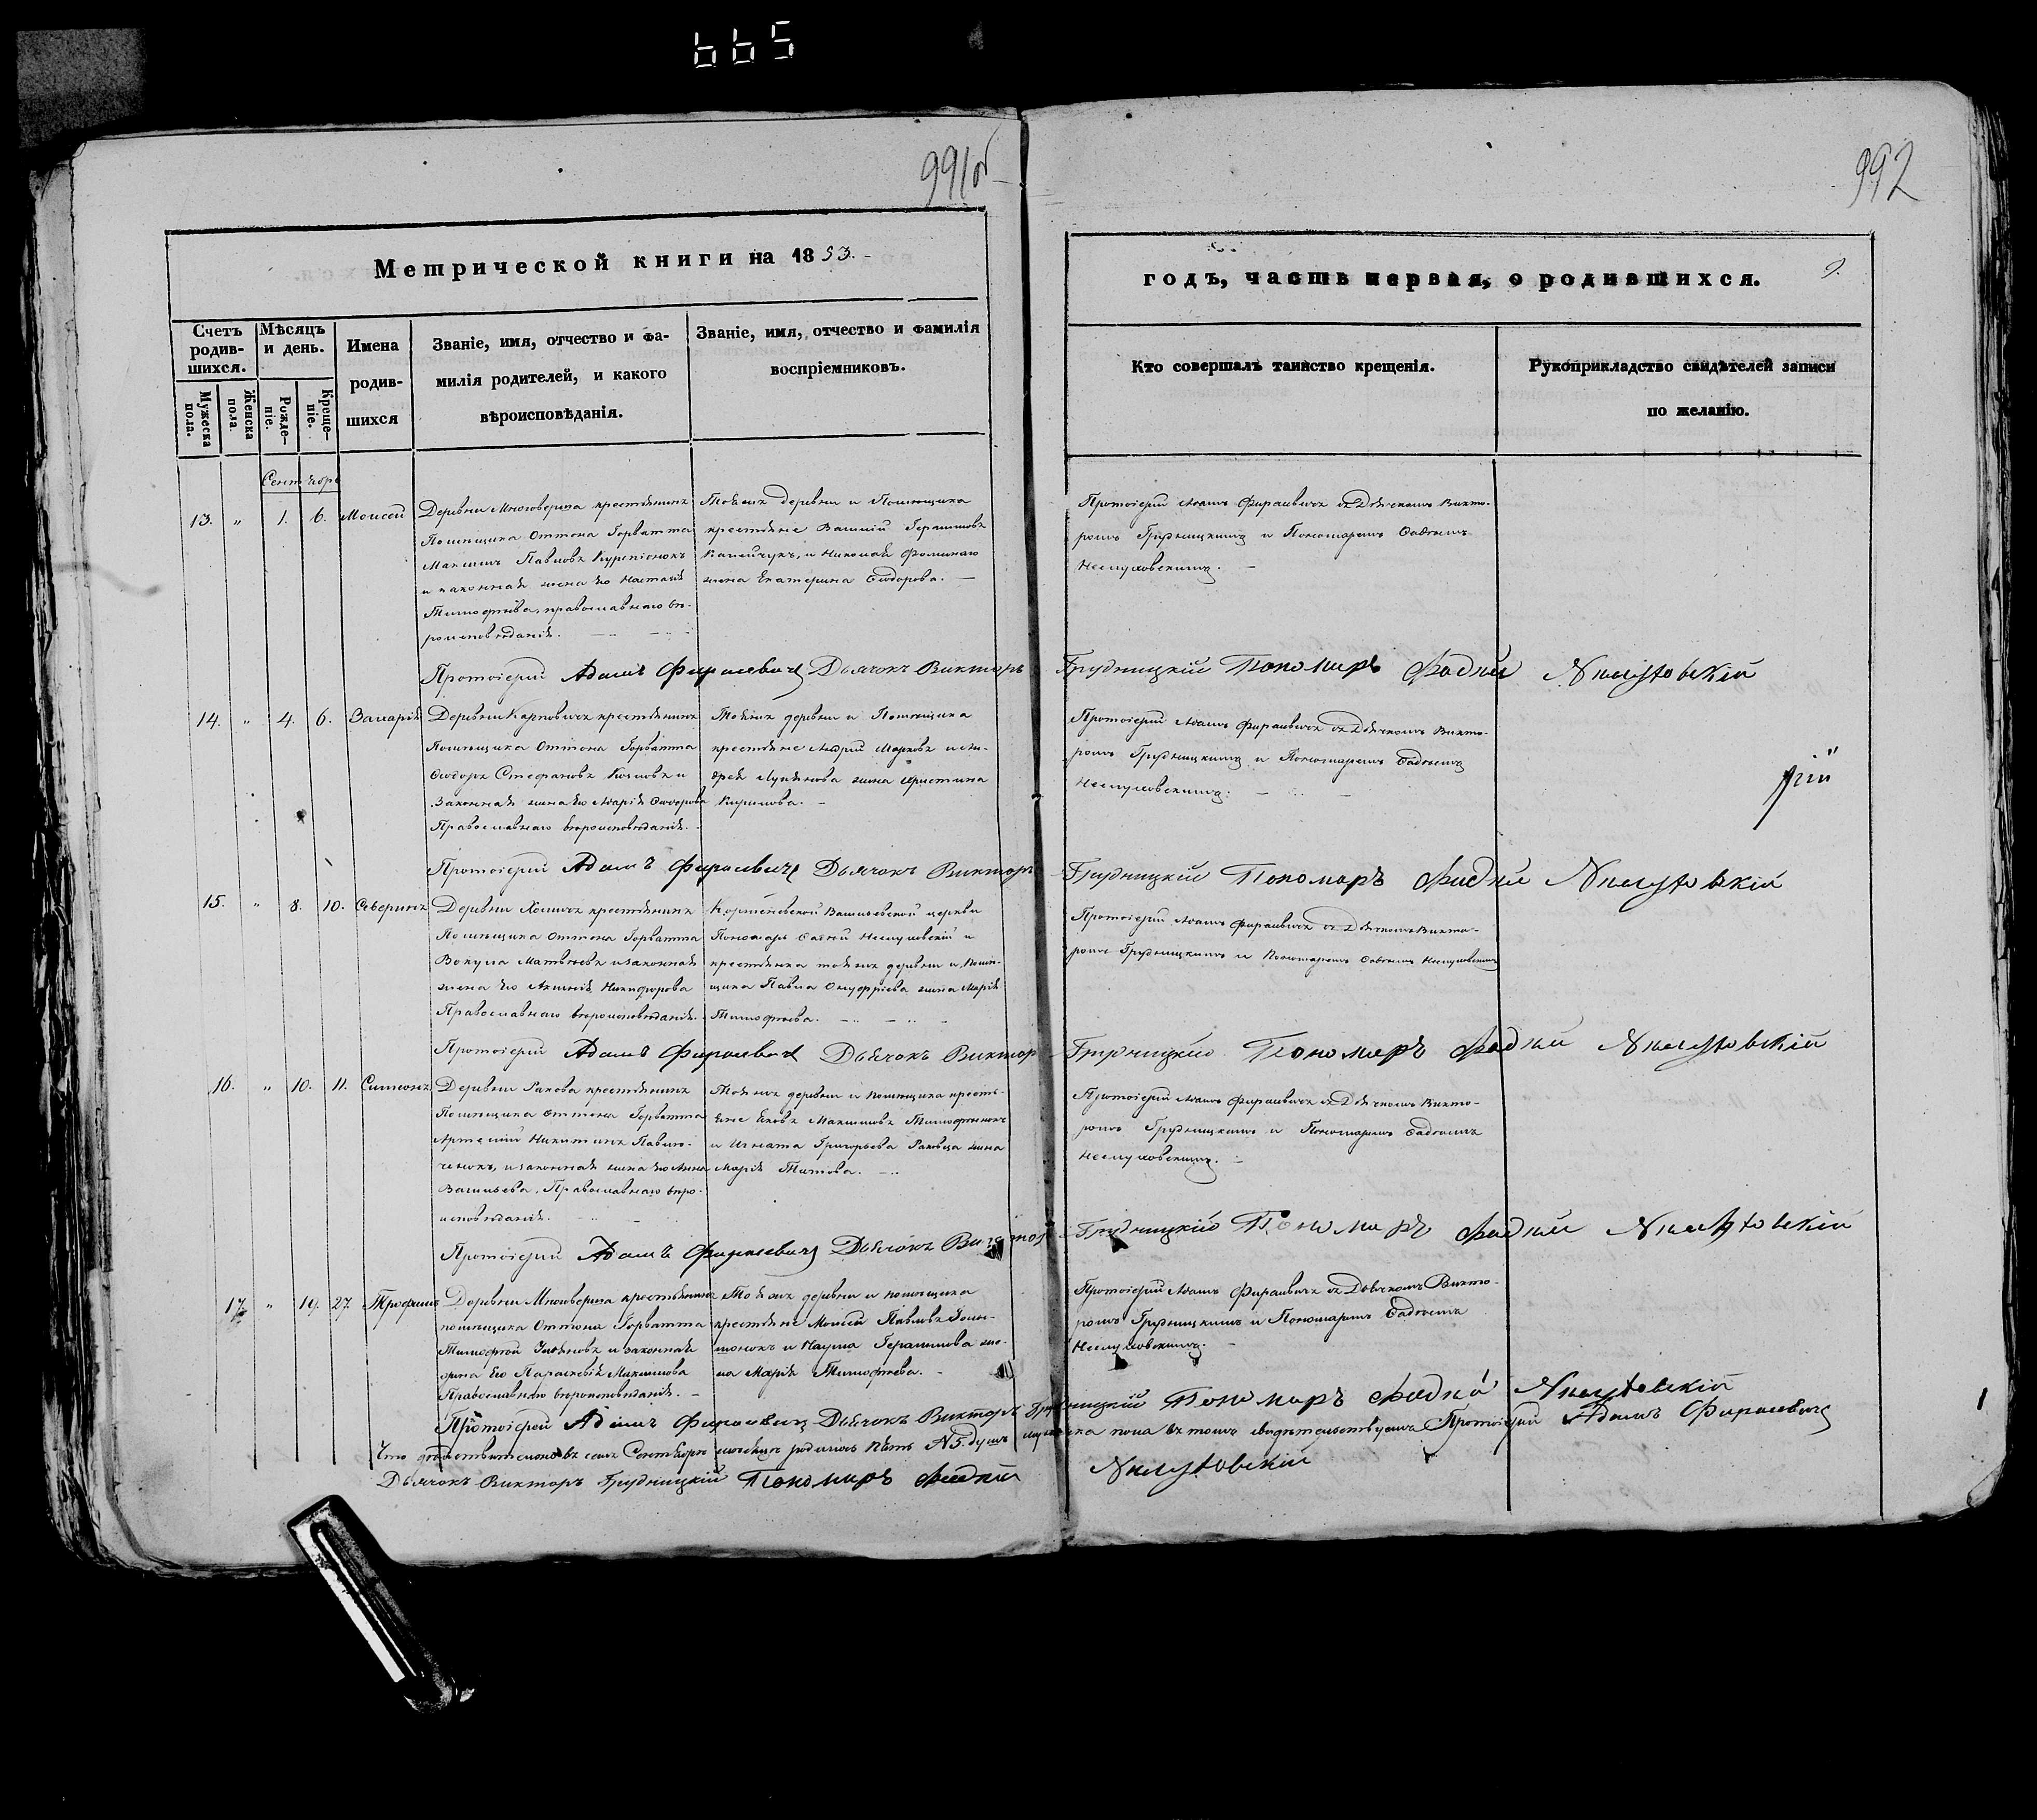 665
991об
992
Метрической книги на 1853.
годъ, часть первая, о родившихся.
9.
Счетъ родив-шихся.
Мѣсяцъ и день.
Имена родив-шихся
Званіе, имя, отчество и фа-
милія родителей, и какого
вѣроисповѣданія.
Званіе, имя, отчество и фамилія
воспріемниковъ.
Кто совершалъ таинство крещенія.
Рукоприкладство свидѣтелей записи
по желанію.
Мужеска пола.
Женска пола.
Рожде-ніе.
Креще-ніе.
Сентябрь
13. " 1. 6. Моисей
Деревни Многоверша крестьянинъ
Помѣщика Оттона Горватта
Максимъ Павловъ
и законная жена его Настасія
Тимофѣева, православнаго вѣ-
роисповѣданія.
Тоя же деревни и Помѣщика
крестьяне Василій Герасимовъ
и Николая
жена Екатерина Ѳеодорова.
Протоіерей Адамъ Фираевичъ съ Дьячкомъ Викто-
ромъ Грудницкимъ и Пономаремъ Фадѣемъ
Протоіерей Адамъ Фираевичъ Дьячокъ Викторъ Грудницкій Пономарь Фадѣй
14. " 4. 6. Захарія
Деревни Карповичъ крестьянинъ
Помѣщика Оттона Горватта
Ѳеодоръ Стефановъ Козловъ и
Законная жена его Марія Ѳеодорова
Православнаго вѣроисповѣданія.
Тоя же деревни и Помѣщика
крестьяне Андрей Марковъ и Ан-
дрея Лукьянова жена Христина
Кирилова.
Протоіерей Адамъ Фираевичъ съ Дьячкомъ Викто-
ромъ Грудницкимъ и Пономаремъ Фадѣемъ
Протоіерей Адамъ Фираевичъ Дьячокъ Викторъ Грудницкій Пономарь Фадѣй
15. " 8. 10. Северинъ
Деревни Хомичъ крестьянинъ
Помѣщика Оттона Горватта
Вакула Матвѣевъ и законная
жена его Аксинія Никифорова
Православнаго вѣроисповѣданія.
Васильевской церкви
Пономарь Фадѣй и
крестьянка тоя же деревни и Помѣ-
щика Павла Онуфріева жена Марія
Тимофѣева.
Протоіерей Адамъ Фираевичъ съ Дьячкомъ Викто-
ромъ Грудницкимъ и Пономаремъ Фадѣемъ
Протоіерей Адамъ Фираевичъ Дьячокъ Викторъ Грудницкій Пономарь Фадѣй
16. " 10. 11. Симеонъ
Деревни Ракова крестьянинъ
Помѣщика Оттона Горватта
Артемій Никитинъ Павлю-
ченокъ, и законная жена его Анна
Васильева, Православнаго вѣро-
исповѣданія.
Тоя же деревни и помѣщика кресть-
яне Яковъ Максимовъ
и Игната Григорьева жена
Марія Титова.
Протоіерей Адамъ Фираевичъ съ Дьячкомъ Викто-
ромъ Грудницкимъ и Пономаремъ Фадѣемъ
Протоіерей Адамъ Фираевичъ Дьячокъ Викторъ Грудницкій Пономарь Фадѣй
17. " 19. 27. Трофимъ
Деревни Многоверша крестьянинъ
помѣщика Оттона Горватта
Тимофей Ульяновъ и законная
жена его Параскевія Максимова
Православнаго вѣроисповѣданія.
Тоя же деревни и помѣщика
крестьяне Моисей Павловъ
и Наума Герасимова же-
на Марія Тимофѣева.
Протоіерей Адамъ Фираевичъ съ Дьячкомъ Викто-
ромъ Грудницкимъ и Пономаремъ Фадѣемъ
Протоіерей Адамъ Фираевичъ Дьячокъ Викторъ Грудницкій Пономарь Фадѣй
Что дѣйствительно въ семъ Сентябрѣ мѣсяцѣ родилось пять №5. душъ мужеска пола въ томъ свидѣтельствуемъ Протоіерей Адамъ Фираевичъ
Дьячокъ Викторъ Грудницкій Пономарь Фадѣй